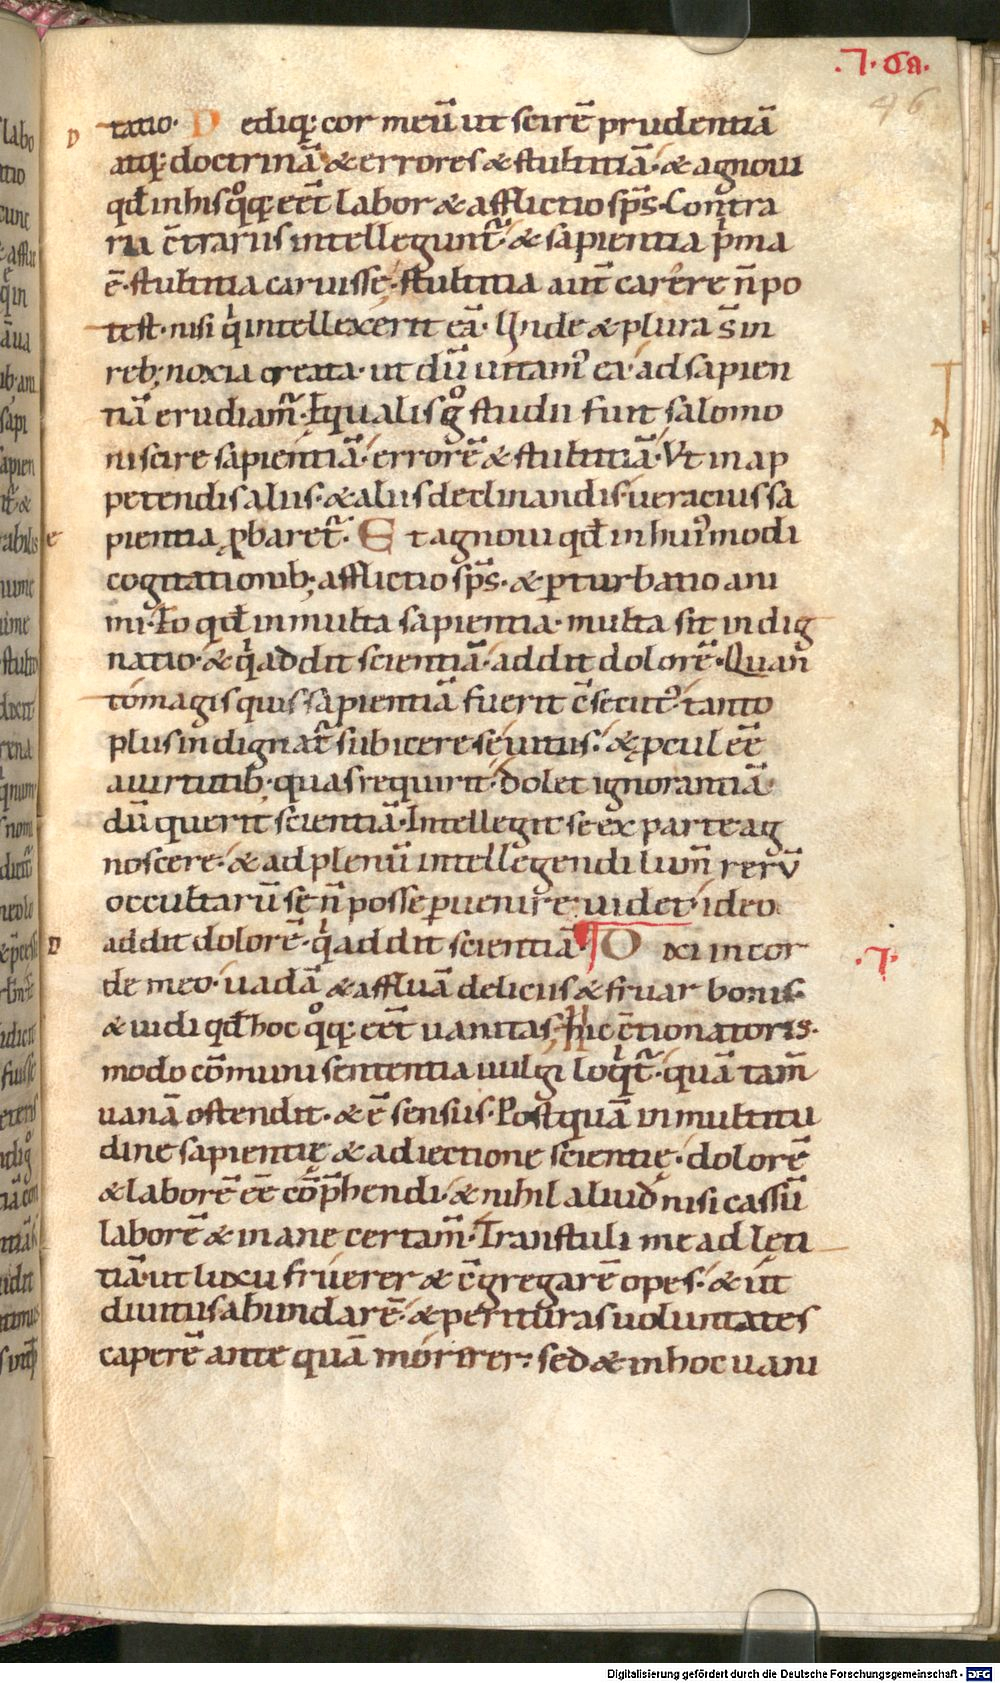 .7. Ca.
46
tatio. D ediq; cor meū ut scirē prudentiā
atq; doctrinā & errores & stultitiā. & agnoui
qđ in his qͦq; eēt labor & afflictio sp̄s. Contra
ria c̄trariis intellegunt̄. & sapientia pͥma
ē. stultitia caruisse. stultitia aut̄ carere n̄ po
test. nisi qͥ intellexerit eā. Unde & plura s̄ in
reb; noxia creata. ut dū uitamꝰ ea. ad sapien
tiā erudiam̄. Equalis gͦ studii fuit salomo
ni scire sapientiā. errorē & stultitiā. Vt in ap
petendis aliis. & aliis declinandis. ueracius sa
pientia ꝓbaret̄. E t agnoui qđ in huiꝰmodi
cogitationib; afflictio sp̄s. & ꝑturbatio ani
mi. Eo qđ in multa sapientia. multa sit indig
natio. & qͥ addit scientiā. addit dolorē. Quan
to magis quis sapientiā fuerit c̄secutꝰ. tanto
plus indignat̄ subicere se uitiis. & ꝓcul eē
a uirtutib; quas requirit. Dolet ignorantiā
dū querit scientiā. Intellegit se ex parte ag
noscere. & ad plenū intellegendi lum̄ rerū
occultarū se n̄ posse ꝑuenire. uidet. ideo
addit dolorē. qͥ addit scientiā. ¶ D ixi in cor
de meo. uadā & affluā deliciis & fruar bonis.
& uidi qđ hoc qͦq; eēt uanitas. Hic c̄tionatoris.
modo cōmuni sententia uulgi loqͥt̄. quā tam̄
uanā ostendit. & ē sensus. Postquā in multitu
dine sapientię & adiectione scientię. dolorē
& laborē eē cōp̄hendi. & nihil aliud nisi cassū
laborē & inane certam̄. Transtuli me ad lęti
tiā. ut luxu fruerer & c̄gregarē opes. & ut
diuitiis abundarē. & perituras uoluntates
caperē ante quā morirer. sed & in hoc uani
D
e
D
.7.
Digitalisierung gefördert durch die Deutsche Forschungsgemeinschaft - DFG